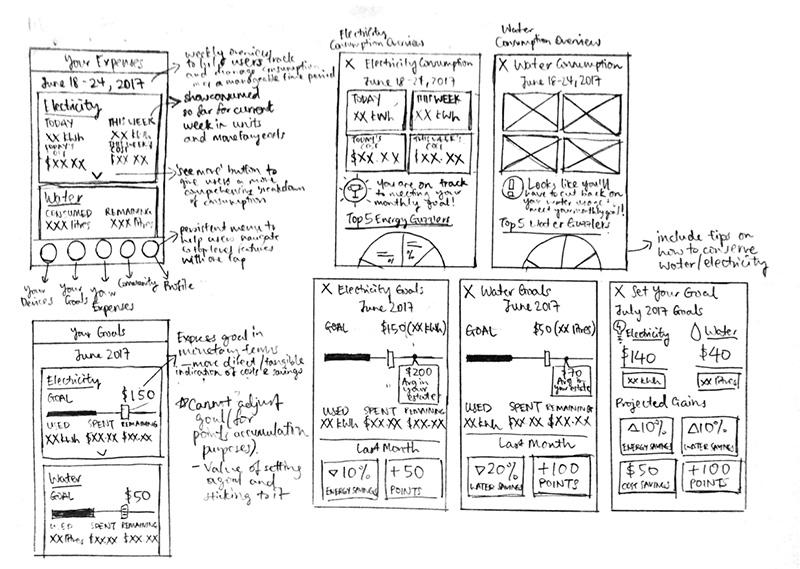 Your Expenses
June 18 - 24, 2017
Electricity
TODAY THIS WEEK
XX kWh XX kWh
TODAY'S COST THIS WEEK'S COST
$XX.XX $XX.XX
Water
CONSUMED REMAINING
XXX litres XXX litres
Your Devices
Your Goals
Your Expenses
Community
Profile
weekly overview
to help users track
and manage consumption
over a manageable time period
show consumed
so far for current
week in units
and monetary costs
'see more' button to
give users a more
comprehensive breakdown
of consumption
persistent menu to
help users navigate
to top level features
with one tap
Electricity
Consumption Overview
X Electricity Consumption
June 18-24, 2017
TODAY THIS WEEK
XX kWh XX kWh
TODAY'S COST THIS WEEK'S COST
$XX.XX $XX.XX
You are on track
to meeting your
monthly goal!
Top 5 Energy Guzzlers
%
Water
Consumption Overview
X Water Consumption
June 18-24, 2017
Looks like you'll
have to cut back on
your water usage to
meet your monthly goal!
Top 5 Water Guzzlers
include tips on
how to conserve
water/electricity
Your Goals
June 2017
Electricity
GOAL $150
USED SPENT REMAINING
XX kWh $XX.XX $XX.XX
Water
GOAL $50
USED SPENT REMAINING
XX litres $XX.XX $XX.XX
Express goal in
monetary terms
- more direct/tangible
indication of costs & savings
Cannot adjust
goal (for
points accumulation
purposes).
- Value of setting
a goal and
sticking to it
X Electricity Goals
June 2017
GOAL $150 (XX kWh)
$200
Avg in
your
estate
USED SPENT REMAINING
XX kWh $XX.XX $XX.XX
Last Month
▽10% +50
ENERGY SAVINGS POINTS
X Water Goals
June 2017
GOAL $50 (XX litres)
$70
Avg in
your estate
USED SPENT REMAINING
XX litres $XX.XX $XX.XX
Last Month
▽20% +100
WATER SAVINGS POINTS
X Set Your Goal
July 2017 Goals
Electricity Water
$140 $40
XX kWh XX litres
Projected Gains
△10% △10%
ENERGY SAVINGS WATER SAVINGS
$50 +100
COST SAVINGS POINTS